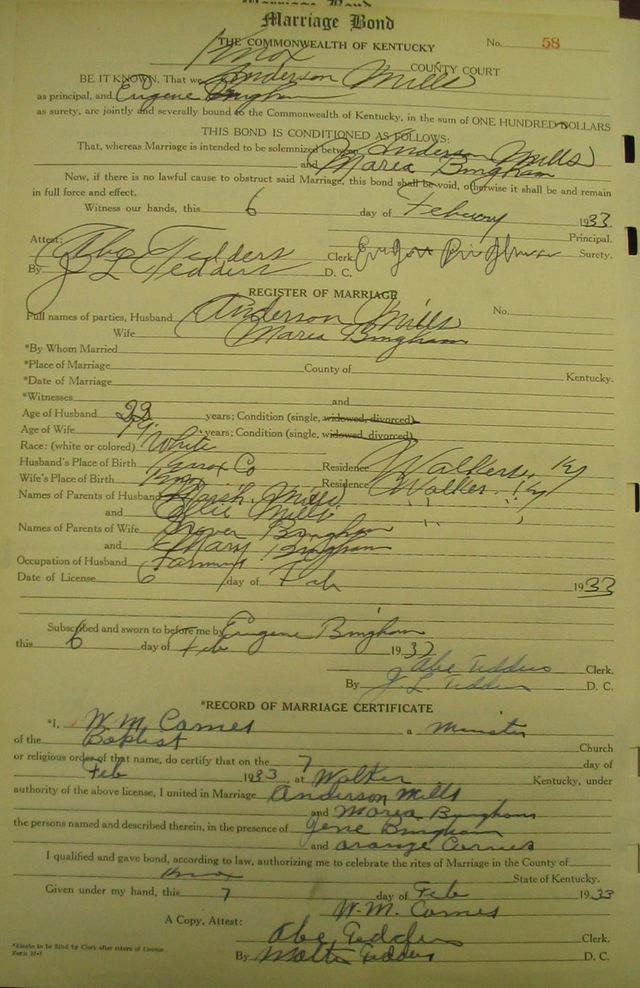 Marriage Bond
Marriage Bond
THE COMMONWEALTH OF KENTUCKY No. 58
Knox COUNTY COURT
BE IT KNOWN, That we Anderson Mills
as principal, and Eugene Bingham
as surety, are jointly and severally bound to the Commonwealth of Kentucky, in the sum of ONE HUNDRED DOLLARS
THIS BOND IS CONDITIONED AS FOLLOWS:
That, whereas Marriage is intended to be solemnized between Anderson Mills
and Marea Bingham
Now, if there is no lawful cause to obstruct said Marriage, this bond shall be void, otherwise it shall be and remain
in full force and effect.
Witness our hands, this 6 day of Febuary 1933
Principal.
Attest: Abe Tedders Clerk. Eugene Bingham Surety.
By J L Tedders D. C.
REGISTER OF MARRIAGE
Full names of parties, Husband Anderson Mills No.
Wife Marea Bingham
*By Whom Married
*Place of Marriage County of Kentucky.
*Date of Marriage
*Witnesses and
Age of Husband 22 years; Condition (single, widowed, divorced)
Age of Wife 19 years; Condition (single, widowed, divorced)
Race: (white or colored) White
Husband's Place of Birth Knox Co Residence Walker, Ky
Wife's Place of Birth Knox Residence Walker, Ky
Names of Parents of Husband Mills " "
and Ellie Mills
Names of Parents of Wife Grover Bingham
and Mary Bingham
Occupation of Husband Farming
Date of License 6 day of Feb 1933
Subscribed and sworn to before me by Eugene Bingham
this 6 day of Feb 1933
Abe Tedders Clerk.
By J. L Tedders D. C.
*RECORD OF MARRIAGE CERTIFICATE
*I, W. M. Carnes a Minister
of the Baptist Church
or religious order of that name, do certify that on the 7 day of
Feb 1933 at Walker Kentucky, under
authority of the above license, I united in Marriage Anderson Mills
and Marea Bingham
the persons named and described therein, in the presence of Gene Bingham
and Orange Carnes
I qualified and gave bond, according to law, authorizing me to celebrate the rites of Marriage in the County of
Knox State of Kentucky.
Given under my hand, this 7 day of Feb 1933
W. M. Carnes
A Copy, Attest: Abe Tedders Clerk.
By Walter Tedders D. C.
*Blanks to be filled by Clerk after return of License